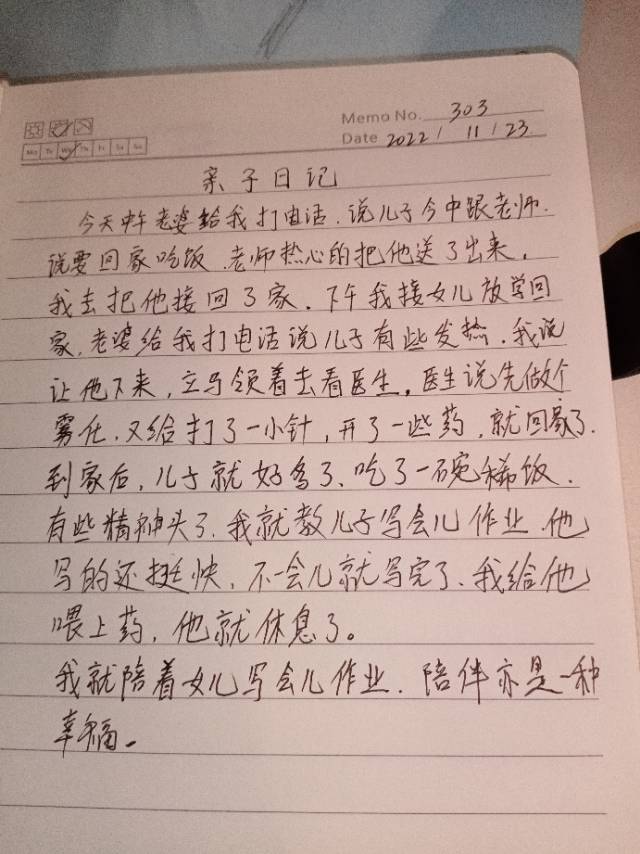 Memo No. 303
Mo Tu We Th Fr Sa Su
Date 2022/ 11 / 23
亲子日记
今天中午老婆给我打电话.说儿子今中跟老师.
说要回家吃饭.老师热心的把他送了出来,
我去把他接回了家.下午我接女儿放学回
家,老婆给我打电话说儿子有些发热.我说
让他下来,立马领着去看医生,医生说先做个
雾化.又给打了一小针,开了一些药,就回家了.
到家后,儿子就好多了、吃了一碗稀饭.
有些精神头了.我就教儿子写会儿作业.他
写的还挺快,不一会儿就写完了.我给他
喂上药,他就休息了。
我就陪着女儿写会儿作业.陪伴亦是一种
幸福。